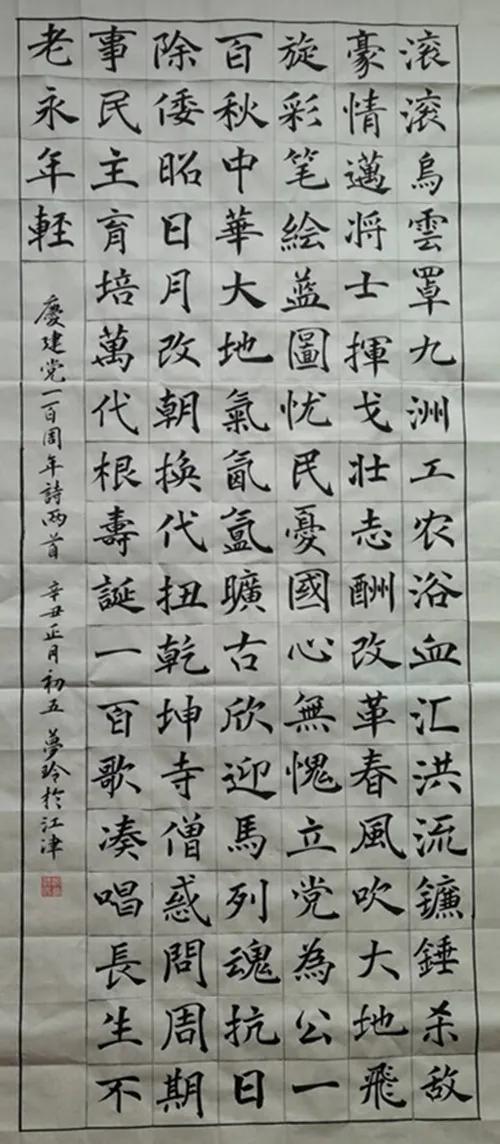 滚滚烏雲罩九洲工农浴血汇洪流镰錘杀敌
豪情邁将士揮戈壮志酬改革春風吹大地飛
旋彩笔绘蓝圖忧民憂國心無愧立党為公一
百秋中華大地氣氤氲曠古欣迎馬列魂抗日
除倭昭日月改朝换代扭乾坤寺僧惑問周期
事民主育培萬代根壽誕一百歌凑唱長生不
老永年輕
慶建党一百周年詩两首 辛丑正月初五 夢玲於江津